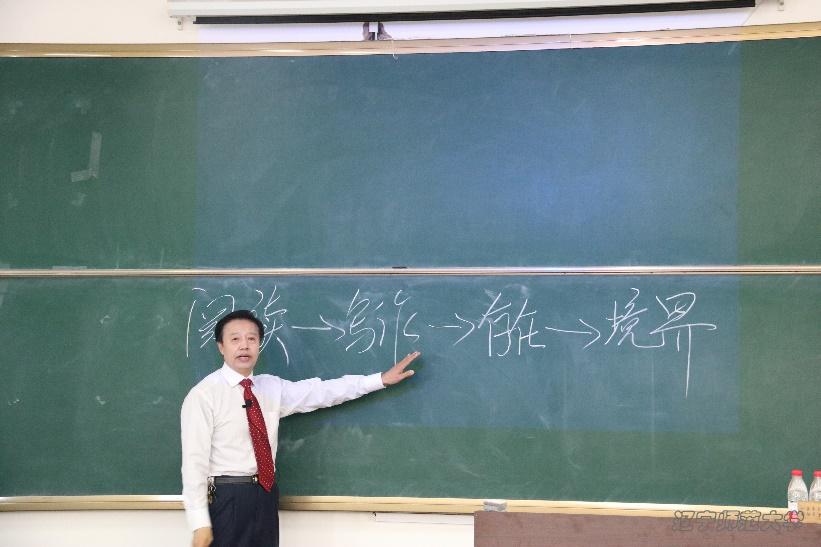 阅读→写作→存在→境界
辽宁师范大学